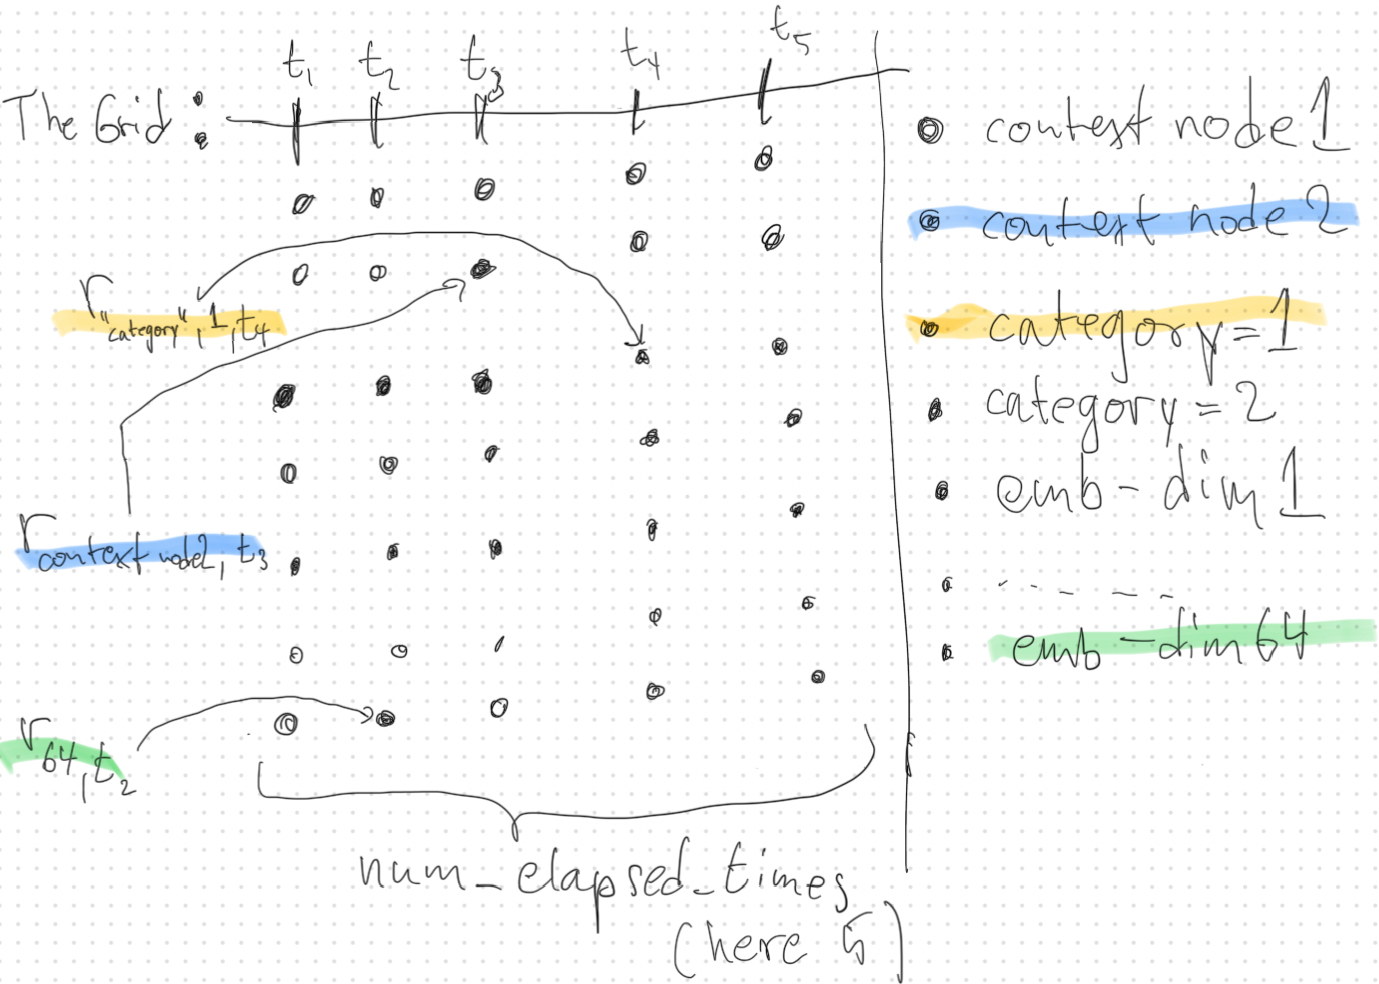 The Grid :
t1 t2 t3 t4 t5
r"category",1,t4
rcontext node2,t3
r64,t2
num_elapsed_times
(here 5)
context node 1
context node 2
category=1
category=2
emb-dim 1
- - - - -
emb-dim 64